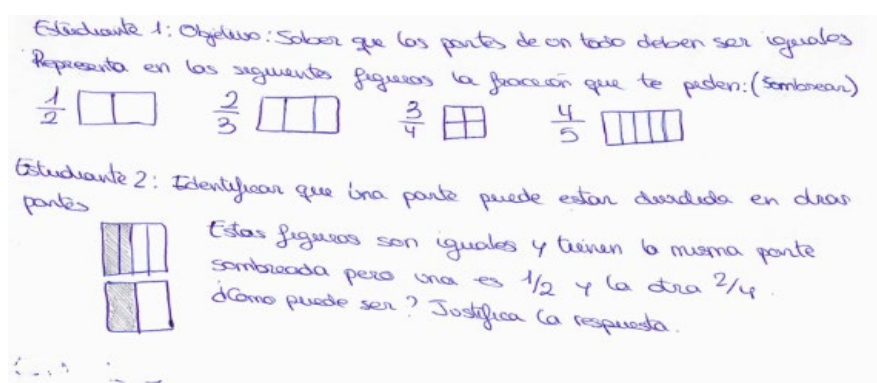 Estudiante 1: Objetivo: Saber que las partes de un todo deben ser iguales
Representa en las siguientes figuras la fracción que te piden: (sombrear)
1/2 2/3 3/4 4/5
Estudiante 2: Identificar que una parte puede estar dividida en otras
partes
Estas figuras son iguales y tienen la misma parte
sombreada pero una es 1/2 y la otra 2/4.
¿Cómo puede ser? Justifica la respuesta.